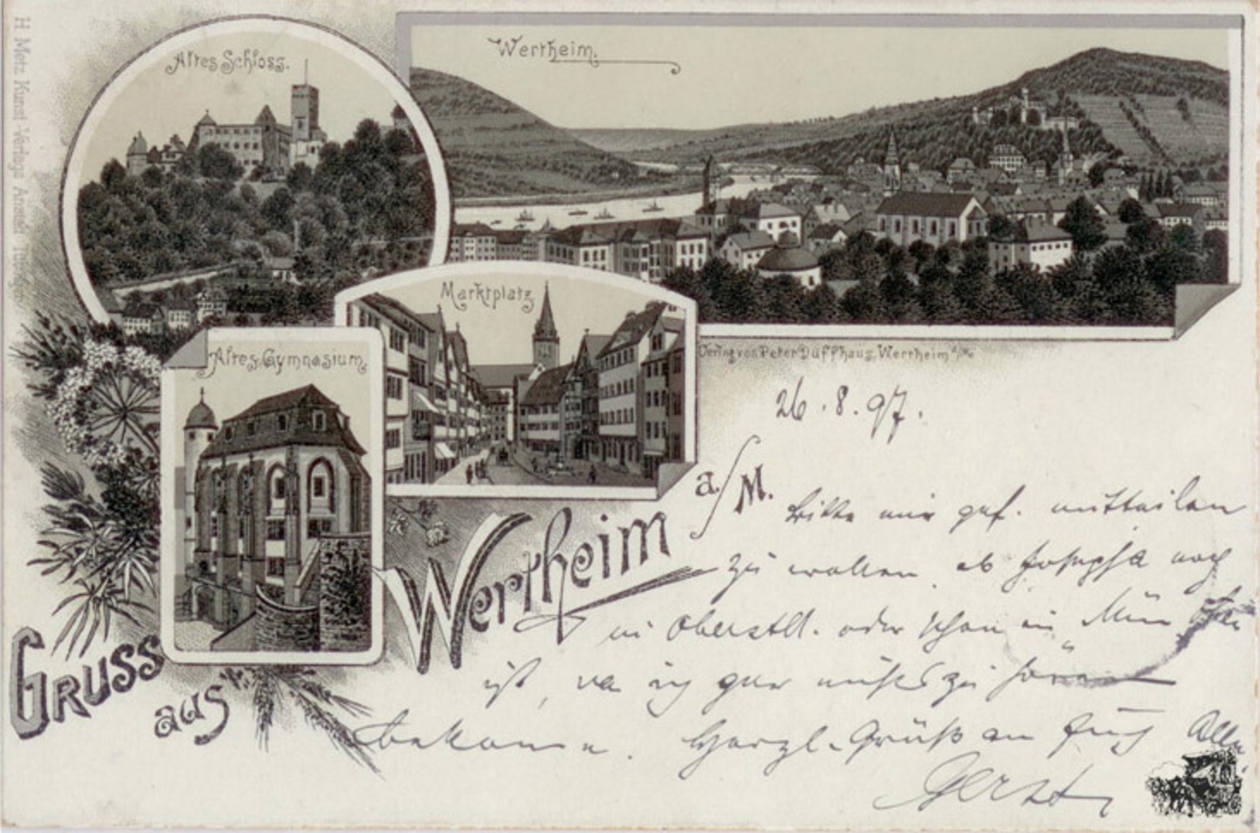 H. Metz Kunst-Verlags Anstalt Tübingen
Altes Schloss.
Wertheim.
Marktplatz
Altes Gymnasium.
Verlag von Peter Düffhaus, Wertheim a/M.
26.8.97.
Gruss
aus
Wertheim a/M.
Bitte mir gef. mitteilen
zu wollen, ob Josepha noch
in Oberstll. oder schon in
ist, da ich gar nichts zu hören
bekomme. Herzl. Grüße an Euch Alle